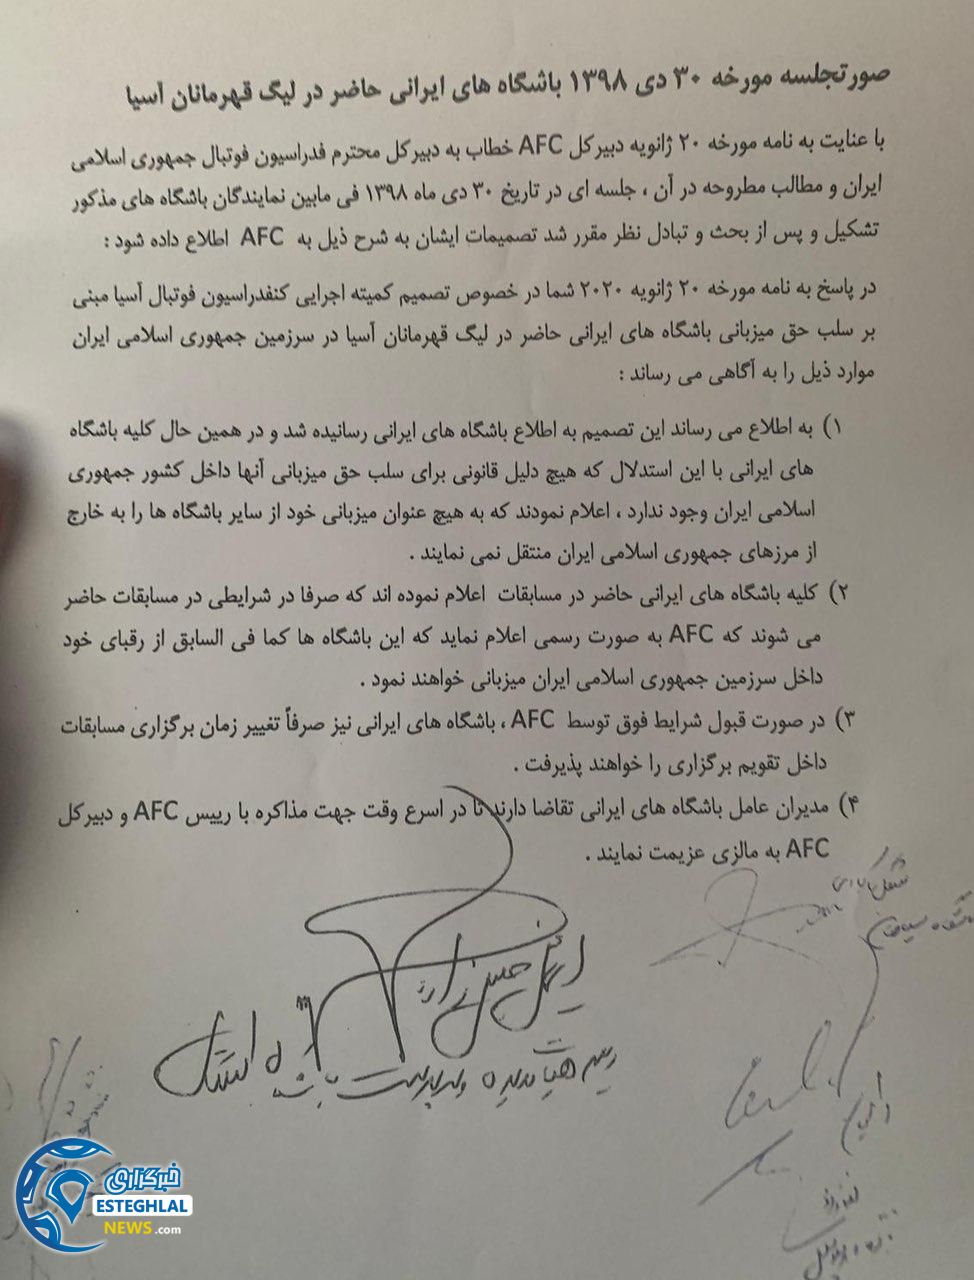 صورتجلسه مورخه ۳۰ دی ۱۳۹۸ باشگاه های ایرانی حاضر در لیگ قهرمانان آسیا
با عنایت به نامه مورخه ۲۰ ژانویه دبیرکل AFC خطاب به دبیرکل محترم فدراسیون فوتبال جمهوری اسلامی
ایران و مطالب مطروحه در آن ، جلسه ای در تاریخ ۳۰ دی ماه ۱۳۹۸ فی مابین نمایندگان باشگاه های مذکور
تشکیل و پس از بحث و تبادل نظر مقرر شد تصمیمات ایشان به شرح ذیل به AFC اطلاع داده شود :
در پاسخ به نامه مورخه ۲۰ ژانویه ۲۰۲۰ شما در خصوص تصمیم کمیته اجرایی کنفدراسیون فوتبال آسیا مبنی
بر سلب حق میزبانی باشگاه های ایرانی حاضر در لیگ قهرمانان آسیا در سرزمین جمهوری اسلامی ایران
موارد ذیل را به آگاهی می رساند :
۱) به اطلاع می رساند این تصمیم به اطلاع باشگاه های ایرانی رسانیده شد و در همین حال کلیه باشگاه
های ایرانی با این استدلال که هیچ دلیل قانونی برای سلب حق میزبانی آنها داخل کشور جمهوری
اسلامی ایران وجود ندارد ، اعلام نمودند که به هیچ عنوان میزبانی خود از سایر باشگاه ها را به خارج
از مرزهای جمهوری اسلامی ایران منتقل نمی نمایند .
۲) کلیه باشگاه های ایرانی حاضر در مسابقات اعلام نموده اند که صرفا در شرایطی در مسابقات حاضر
می شوند که AFC به صورت رسمی اعلام نماید که این باشگاه ها کما فی السابق از رقبای خود
داخل سرزمین جمهوری اسلامی ایران میزبانی خواهند نمود .
۳) در صورت قبول شرایط فوق توسط AFC ، باشگاه های ایرانی نیز صرفاً تغییر زمان برگزاری مسابقات
داخل تقویم برگزاری را خواهند پذیرفت .
۴) مدیران عامل باشگاه های ایرانی تقاضا دارند تا در اسرع وقت جهت مذاکره با رییس AFC و دبیرکل
AFC به مالزی عزیمت نمایند .
اسماعیل خلیل زاده
رییس هیات مدیره و سرپرست باشگاه استقلال
خبرگزاری
ESTEGHLAL
NEWS.com